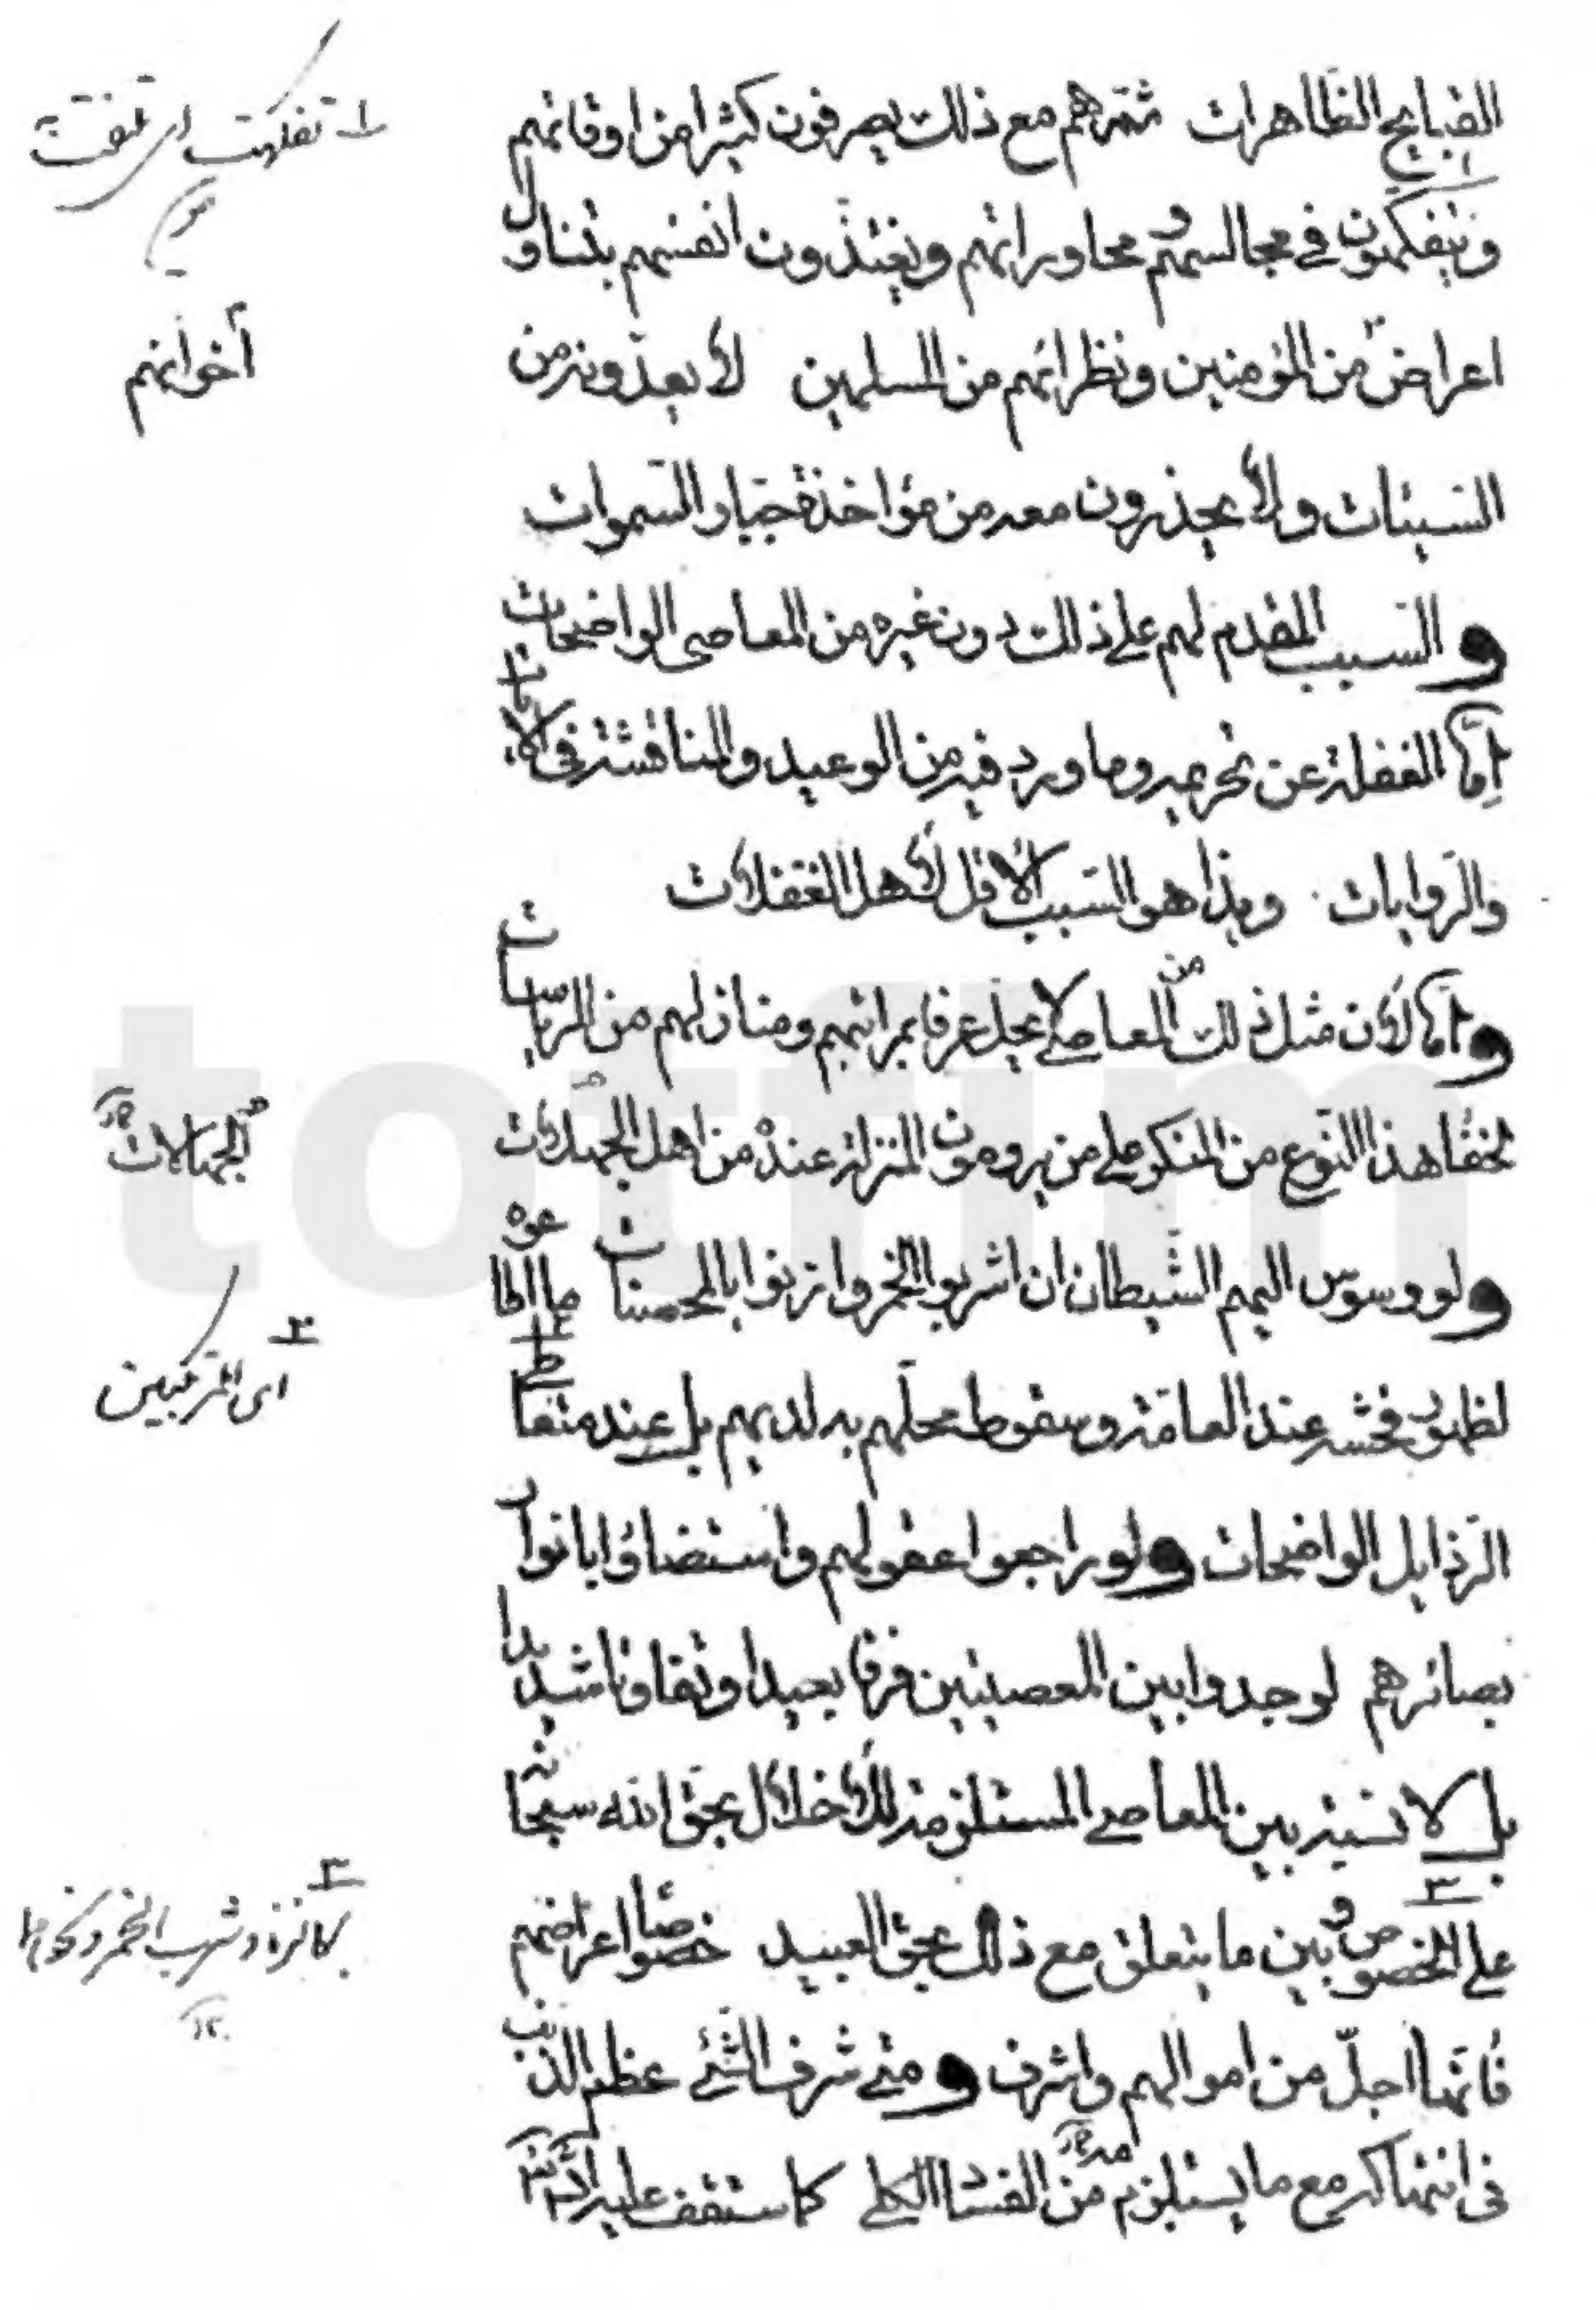 القبايح الظاهرات ثم تريهم مع ذلك يصرفون كثيرا من اوقاتهم
ويتفكهون في مجالستهم ومحاوراتهم ويغتذون انفسهم بتناول
اعراض من المؤمنين ونظرائهم من المسلمين لا يعدونه من
السيئات ولا يحذرون معه من مؤاخذة جبار السموات
والسبب المقدم لهم على ذلك دون غيره من المعاصي الواضحات
اما الغفلة عن تحريمه وما ورد فيه من الوعيد والمناقشة في الايات
والروايات وهذا هو السبب الاقل لاهل الغفلات
واما لان مثل ذلك من المعاصي لا يخل عرفا بمراتبهم ومنازلهم من الرياسات
لخفاء هذا النوع من المنكر على من يرومون المنزلة عنده من اهل الجهلات
ولو وسوس اليهم الشيطان ان اشربوا الخمر وازنوا بالمحصنات ما اطاعوه
لظهور فحشه عند العامة وسقوط محلهم به لديهم بل عند متعاطي
الرذايل الواضحات ولو راجعوا عقولهم واستضاؤا بانوار
بصائرهم لوجدوا بين المعصيتين فرقا بعيدا وتفاوتا شديدا
بل لا نسبة بين المعاصي المستلزمة للاخلال بحق الله سبحانه
على الخصوص وبين ما يتعلق مع ذلك بحق العبيد خصوصا اعراضهم
فانها اجل من اموالهم واشرف ومتى شرف الشئ عظم الذنب
في انتهاكه مع ما يستلزمه من الفساد الكلي كما ستقف عليه انشاء الله
١ تفكهت اى تمتعت به
أخوانهم
الجهالات
٢
اى المرتكبين
٣
كالزنا وشرب الخمر ونحوها
totfim